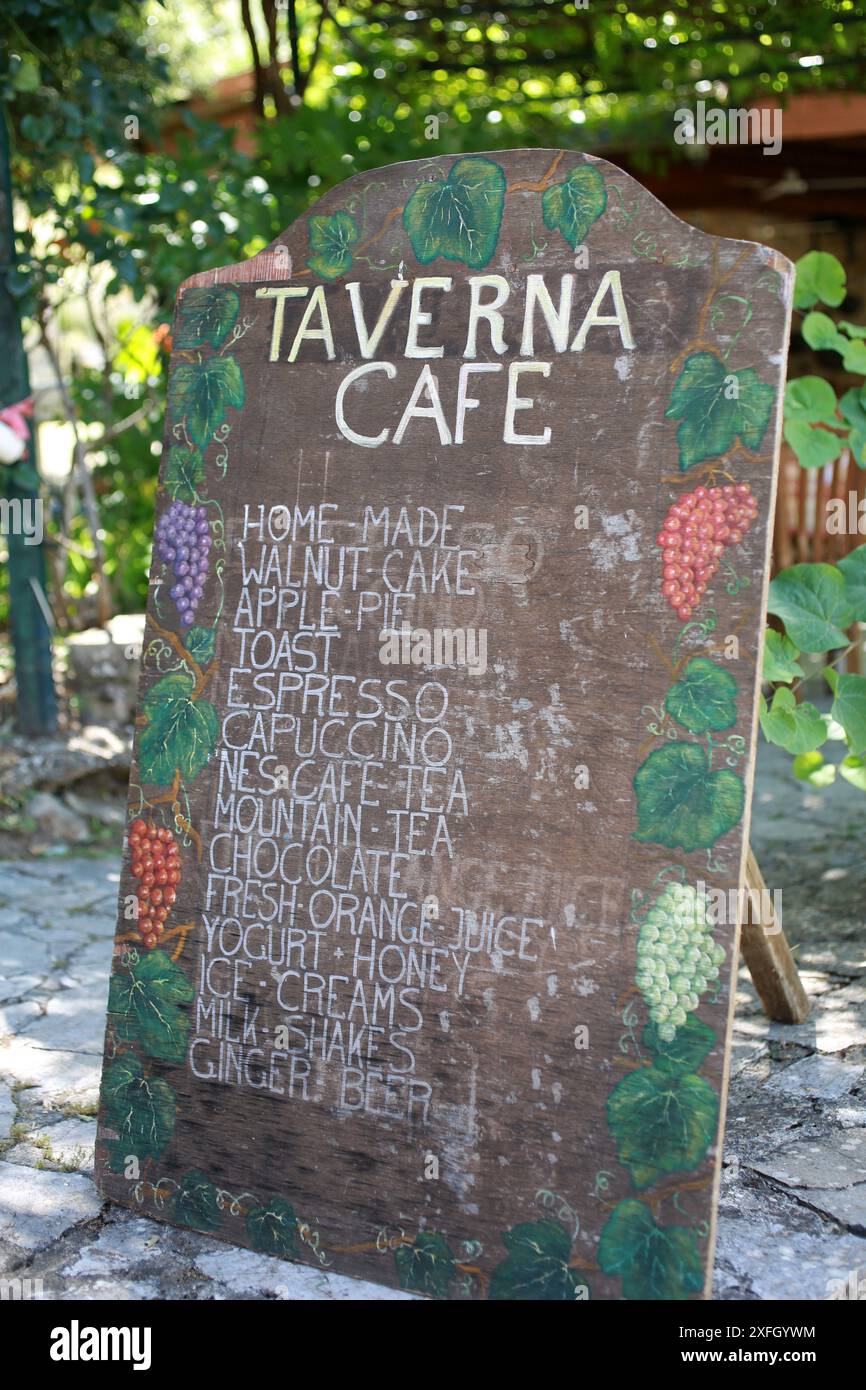 TAVERNA
CAFE
HOME-MADE
WALNUT-CAKE
APPLE-PIE
TOAST
ESPRESSO
CAPUCCINO
NES-CAFE-TEA
MOUNTAIN-TEA
CHOCOLATE
FRESH-ORANGE-JUICE
YOGURT+HONEY
ICE-CREAMS
MILK-SHAKES
GINGER BEER
alamy
alamy
Image ID: 2XFGYWM
www.alamy.com